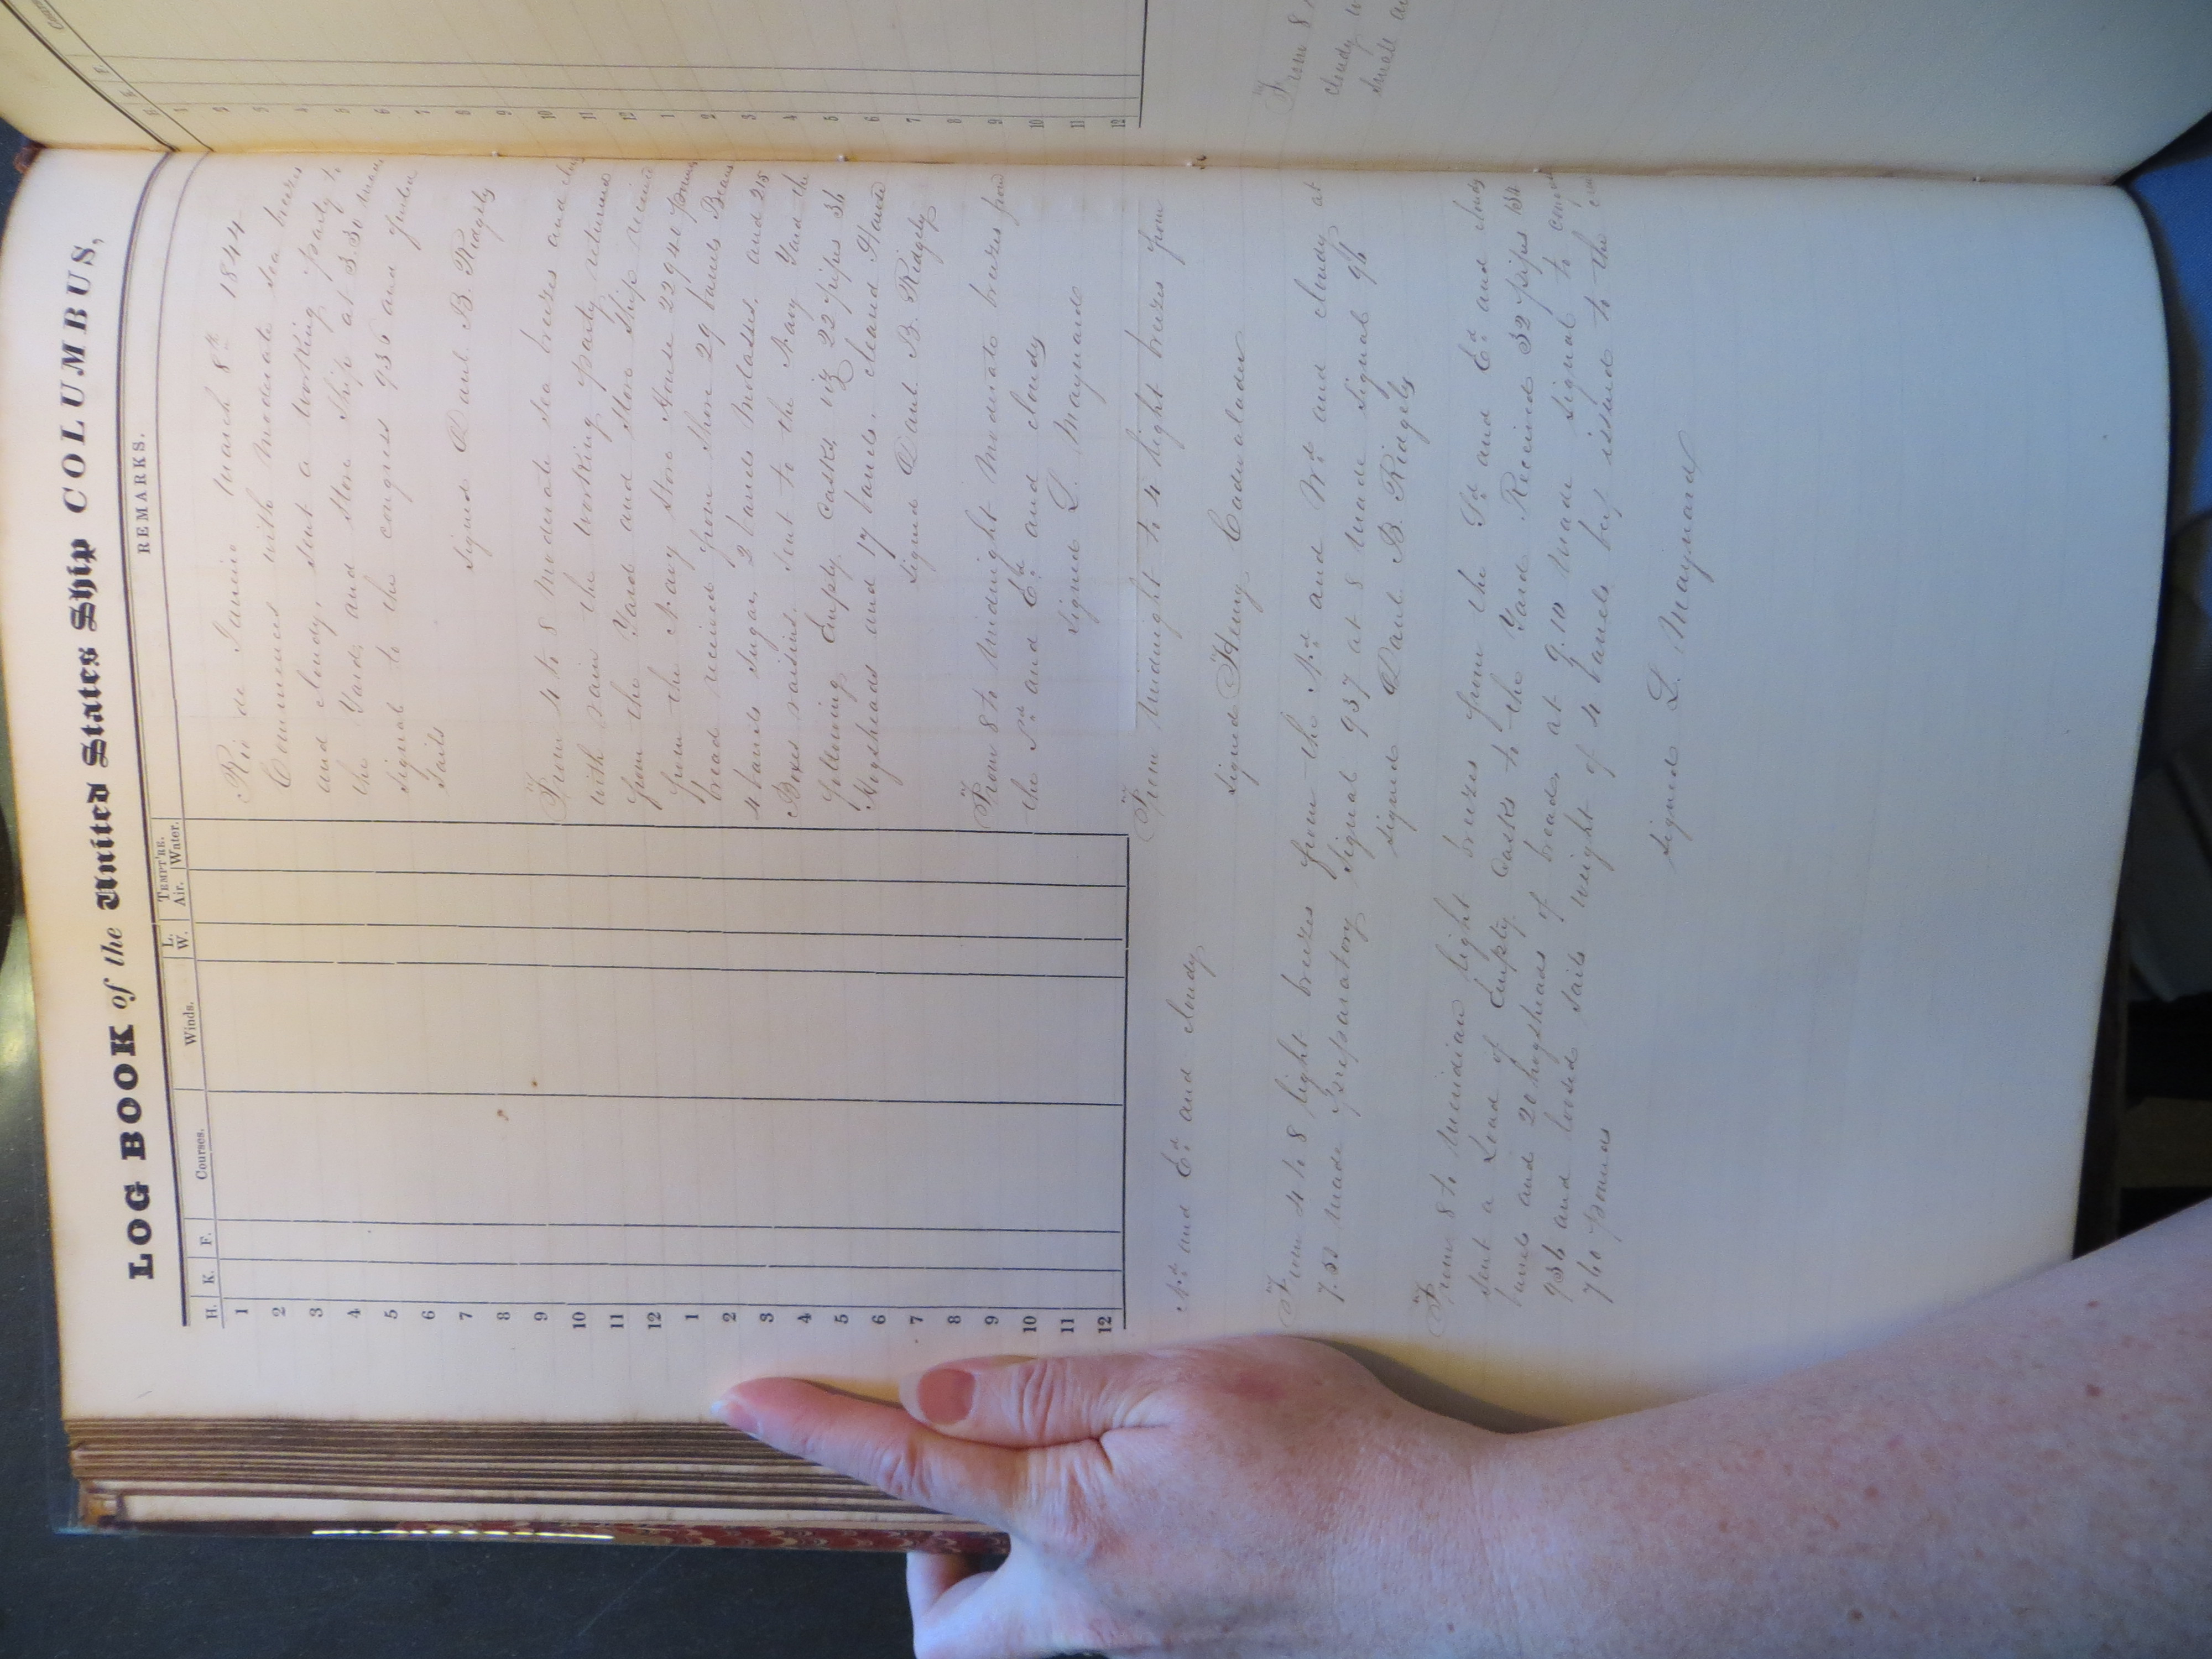 LOG BOOK of the United States Ship COLUMBUS,
REMARKS.
H. K. F. Courses. Winds. L. W. TEMPT'RE. Air. Water.
1
2
3
4
5
6
7
8
9
10
11
12
1
2
3
4
5
6
7
8
9
10
11
12
Rio de Janeiro March 8th 1844
Commences with Moderate sea breezes
and cloudy, sent a working party to
the Yard, and Store Ship at 3.30 made
signal to the congress 936 and furled
Sails
Signed Danl B. Ridgely
From 4 to 8 Moderate sea breezes and
with rain the working party returned
from the Yard and Store Ship recieved
from the Navy Store House 22940 pounds
bread recieved from Shore 29 barrels Beans
4 barrels Sugar, 2 barrels Molasses, and 215
Boxes raisins. Sent to the Navy Yard the
following Empty casks viz 22 pipes 36
Hogsheads and 17 barrels. cleared Hawse
Signed Danl B. Ridgely
From 8 to Midnight Moderate breezes from
the Sd and Ed and cloudy
Signed L. Maynard
From Midnight to 4 light breezes from
Nd and Ed and cloudy
Signed Henry Cadwalader
From 4 to 8 light breezes from the Nd and Wd and cloudy at
7.50 made preparatory Signal 937 at 8 made signal 96
Signed Danl B. Ridgely
From 8 to Meridian light breezes from the Sd and Ed and cloudy
sent a Load of Empty Casks to the Yard Recieved 32 pipes 134
barrels and 20 hogsheads of bread, at 9.10 made signal to
936 and loosed sails weight of 4 barrels beef issued to the
760 pounds
Signed L. Maynard
H. K. F.
1
2
3
4
5
6
7
8
9
10
11
12
1
2
3
4
5
6
7
8
9
10
11
12
From 8
cloudy
small